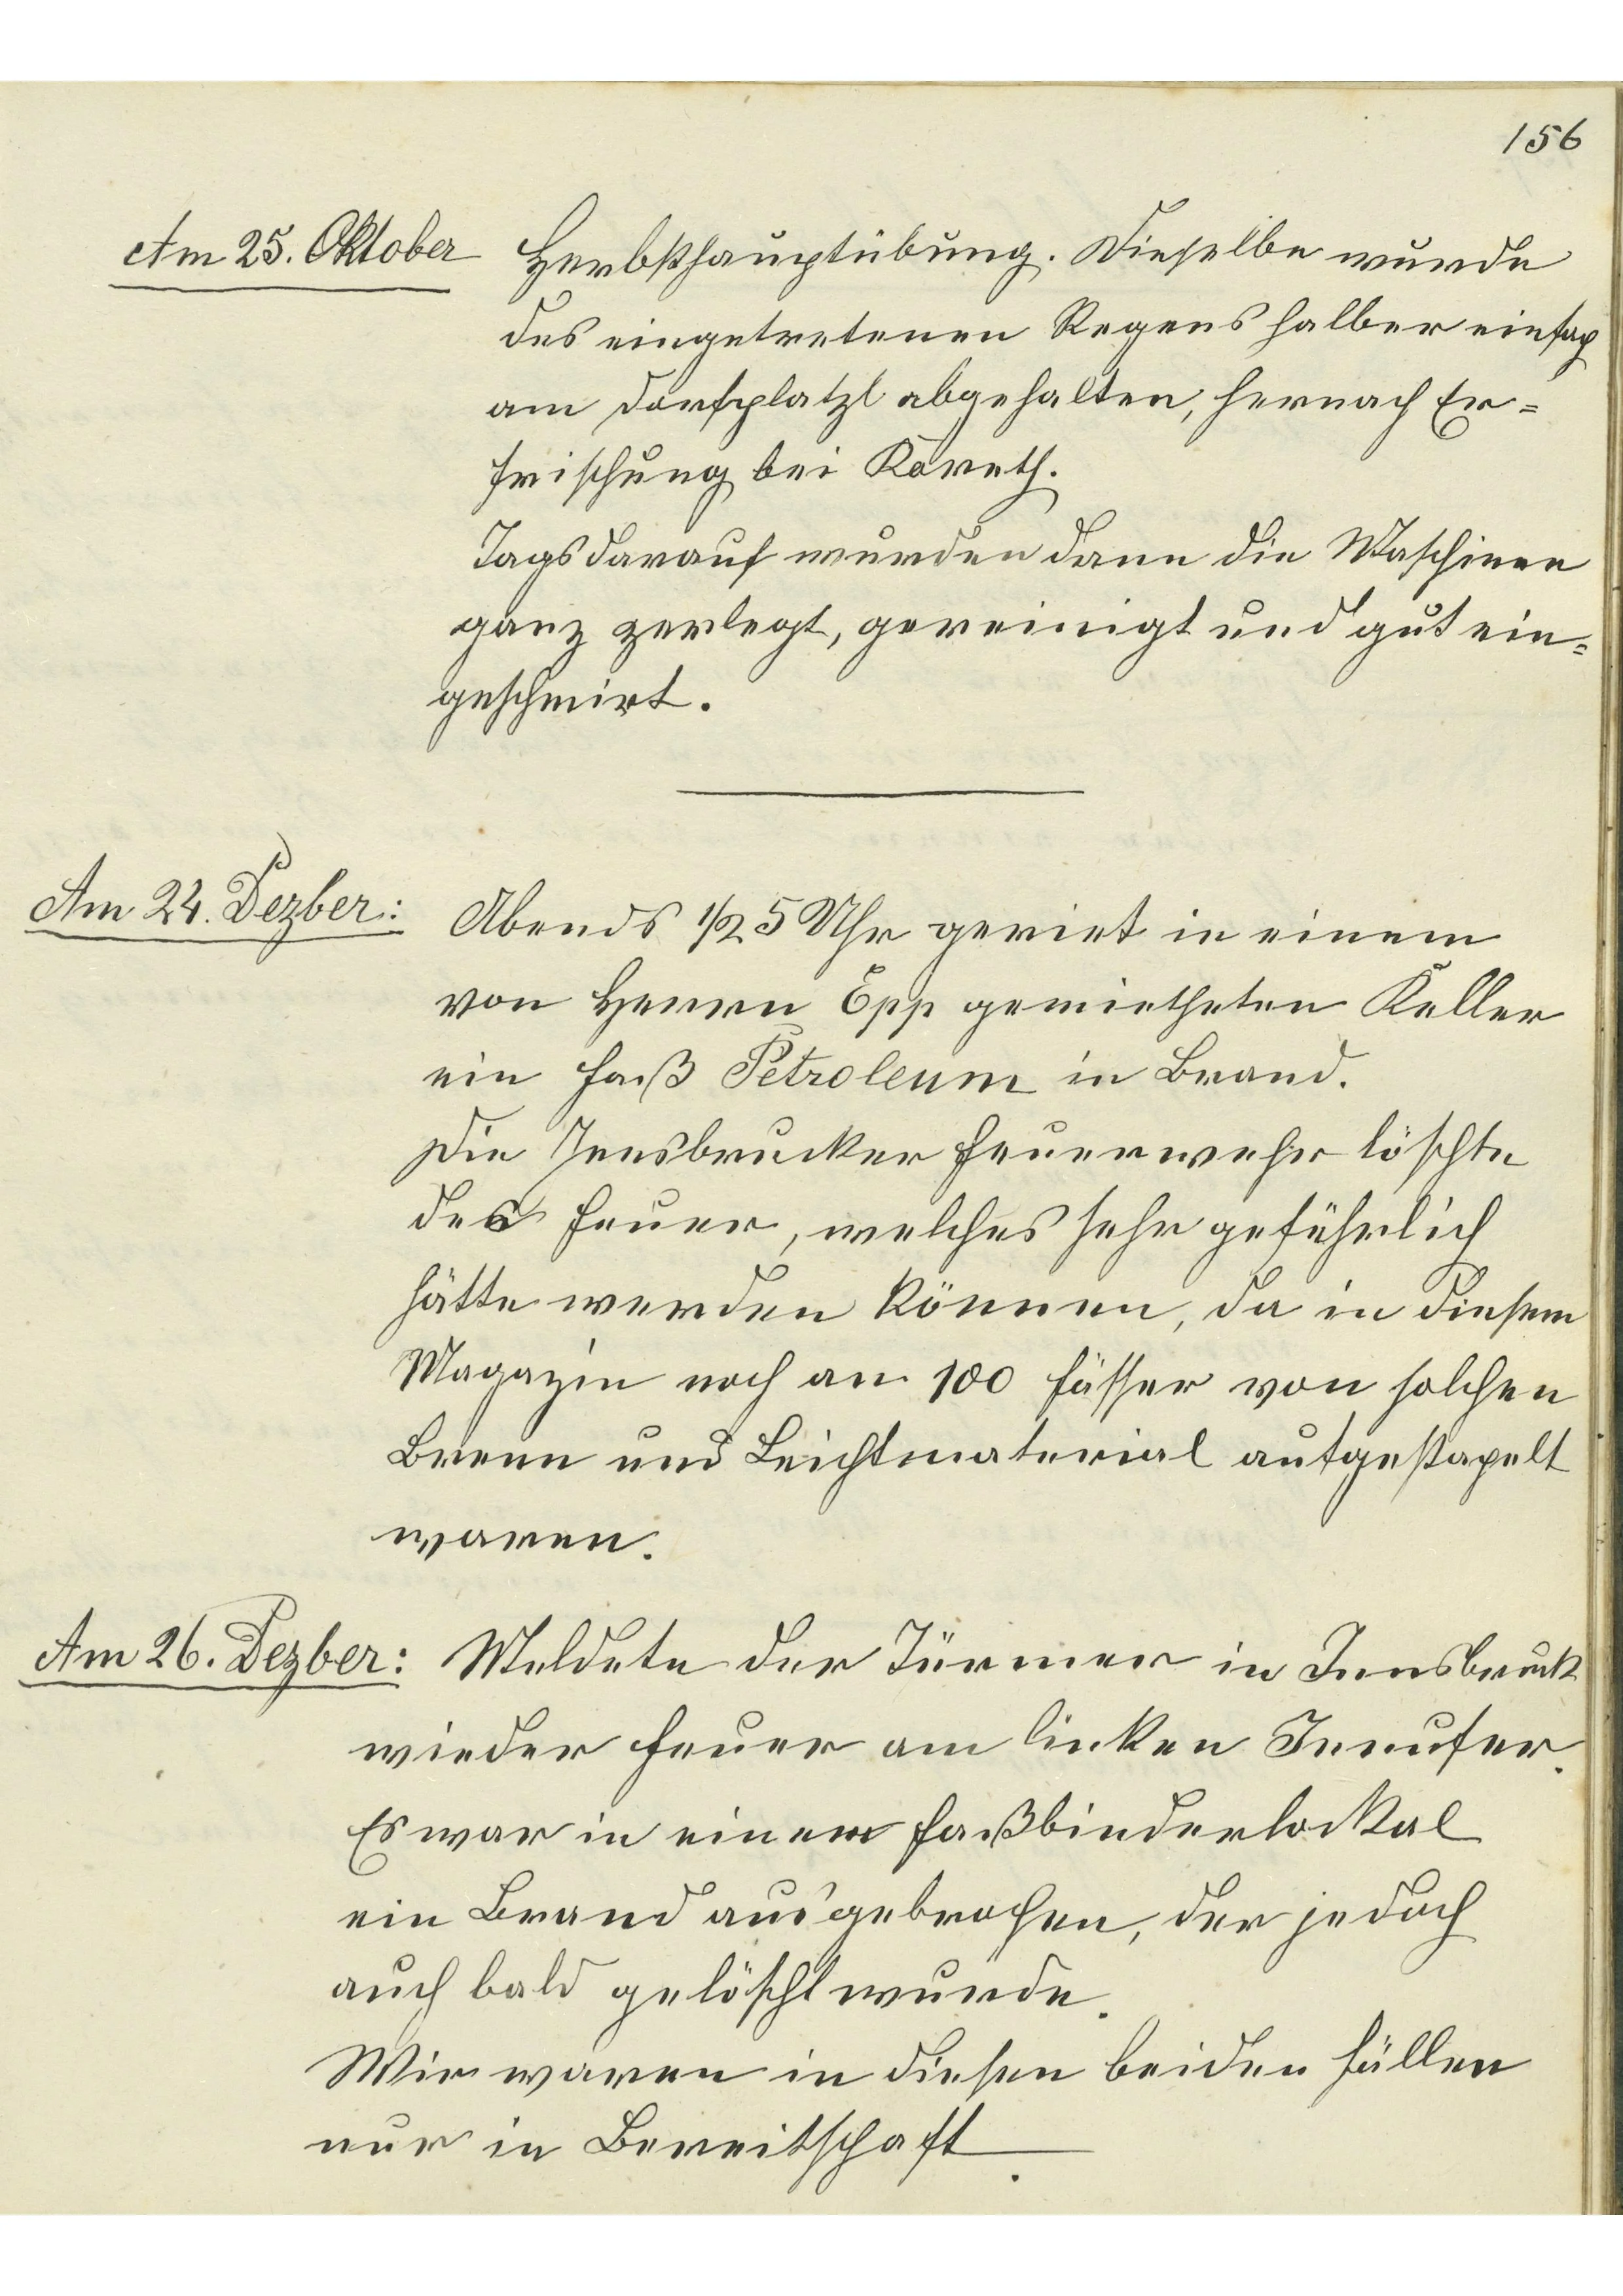 156
Am 25. Oktober Herbsthauptübung. Dieselbe wurde
des eingetretenen Regens halber einfach
am Dorfplatzl abgehalten, hernach Er=
frischung bei Koreth.
Tagsdarauf wurden dann die Maschinen
ganz zerlegt, gereinigt und gut ein=
geschmirt.
Am 24. Dezber: Abends 1/2 5 Uhr geriet in einem
von Herrn Epp gemietheten Keller
ein Faß Petroleum in Brand.
Die Innsbrucker Feuerwehr löschte
das Feuer, welches sehr gefährlich
hätte werden können, da in diesem
Magazin noch an 100 Fässer von solchen
Brenn und Leichtmaterial aufgestapelt
waren.
Am 26. Dezber: Meldete der Türmer in Innsbruck
wieder Feuer am linken Innufer.
Es war in einem Faßbinderlockal
ein Brand ausgebrochen, der jedoch
auch bald gelöscht wurde.
Wir waren in diesen beiden Fällen
nur in Bereitschaft.